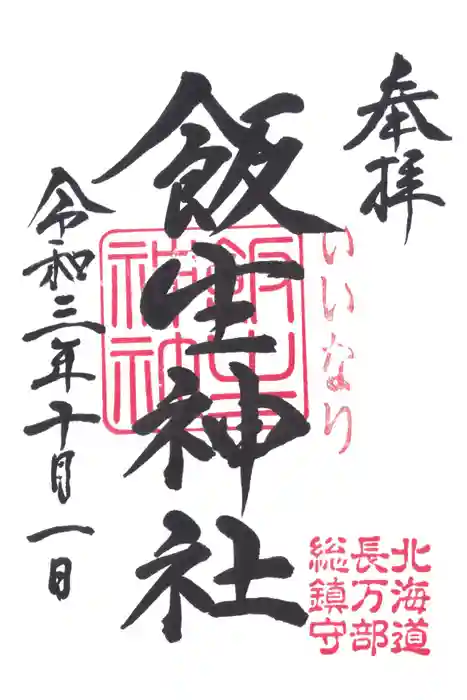 奉拝
いいなり
飯生神社
令和三年十月一日
北海道
長万部
総鎮守